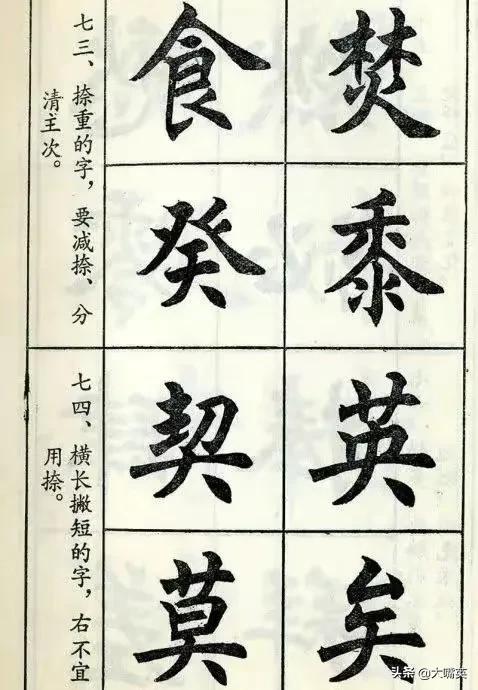 七三、捺重的字，要减捺、分
清主次。
食 焚
癸 黍
七四、横长撇短的字，右不宜
用捺。
契 英
莫 矣
头条 @大嘴英